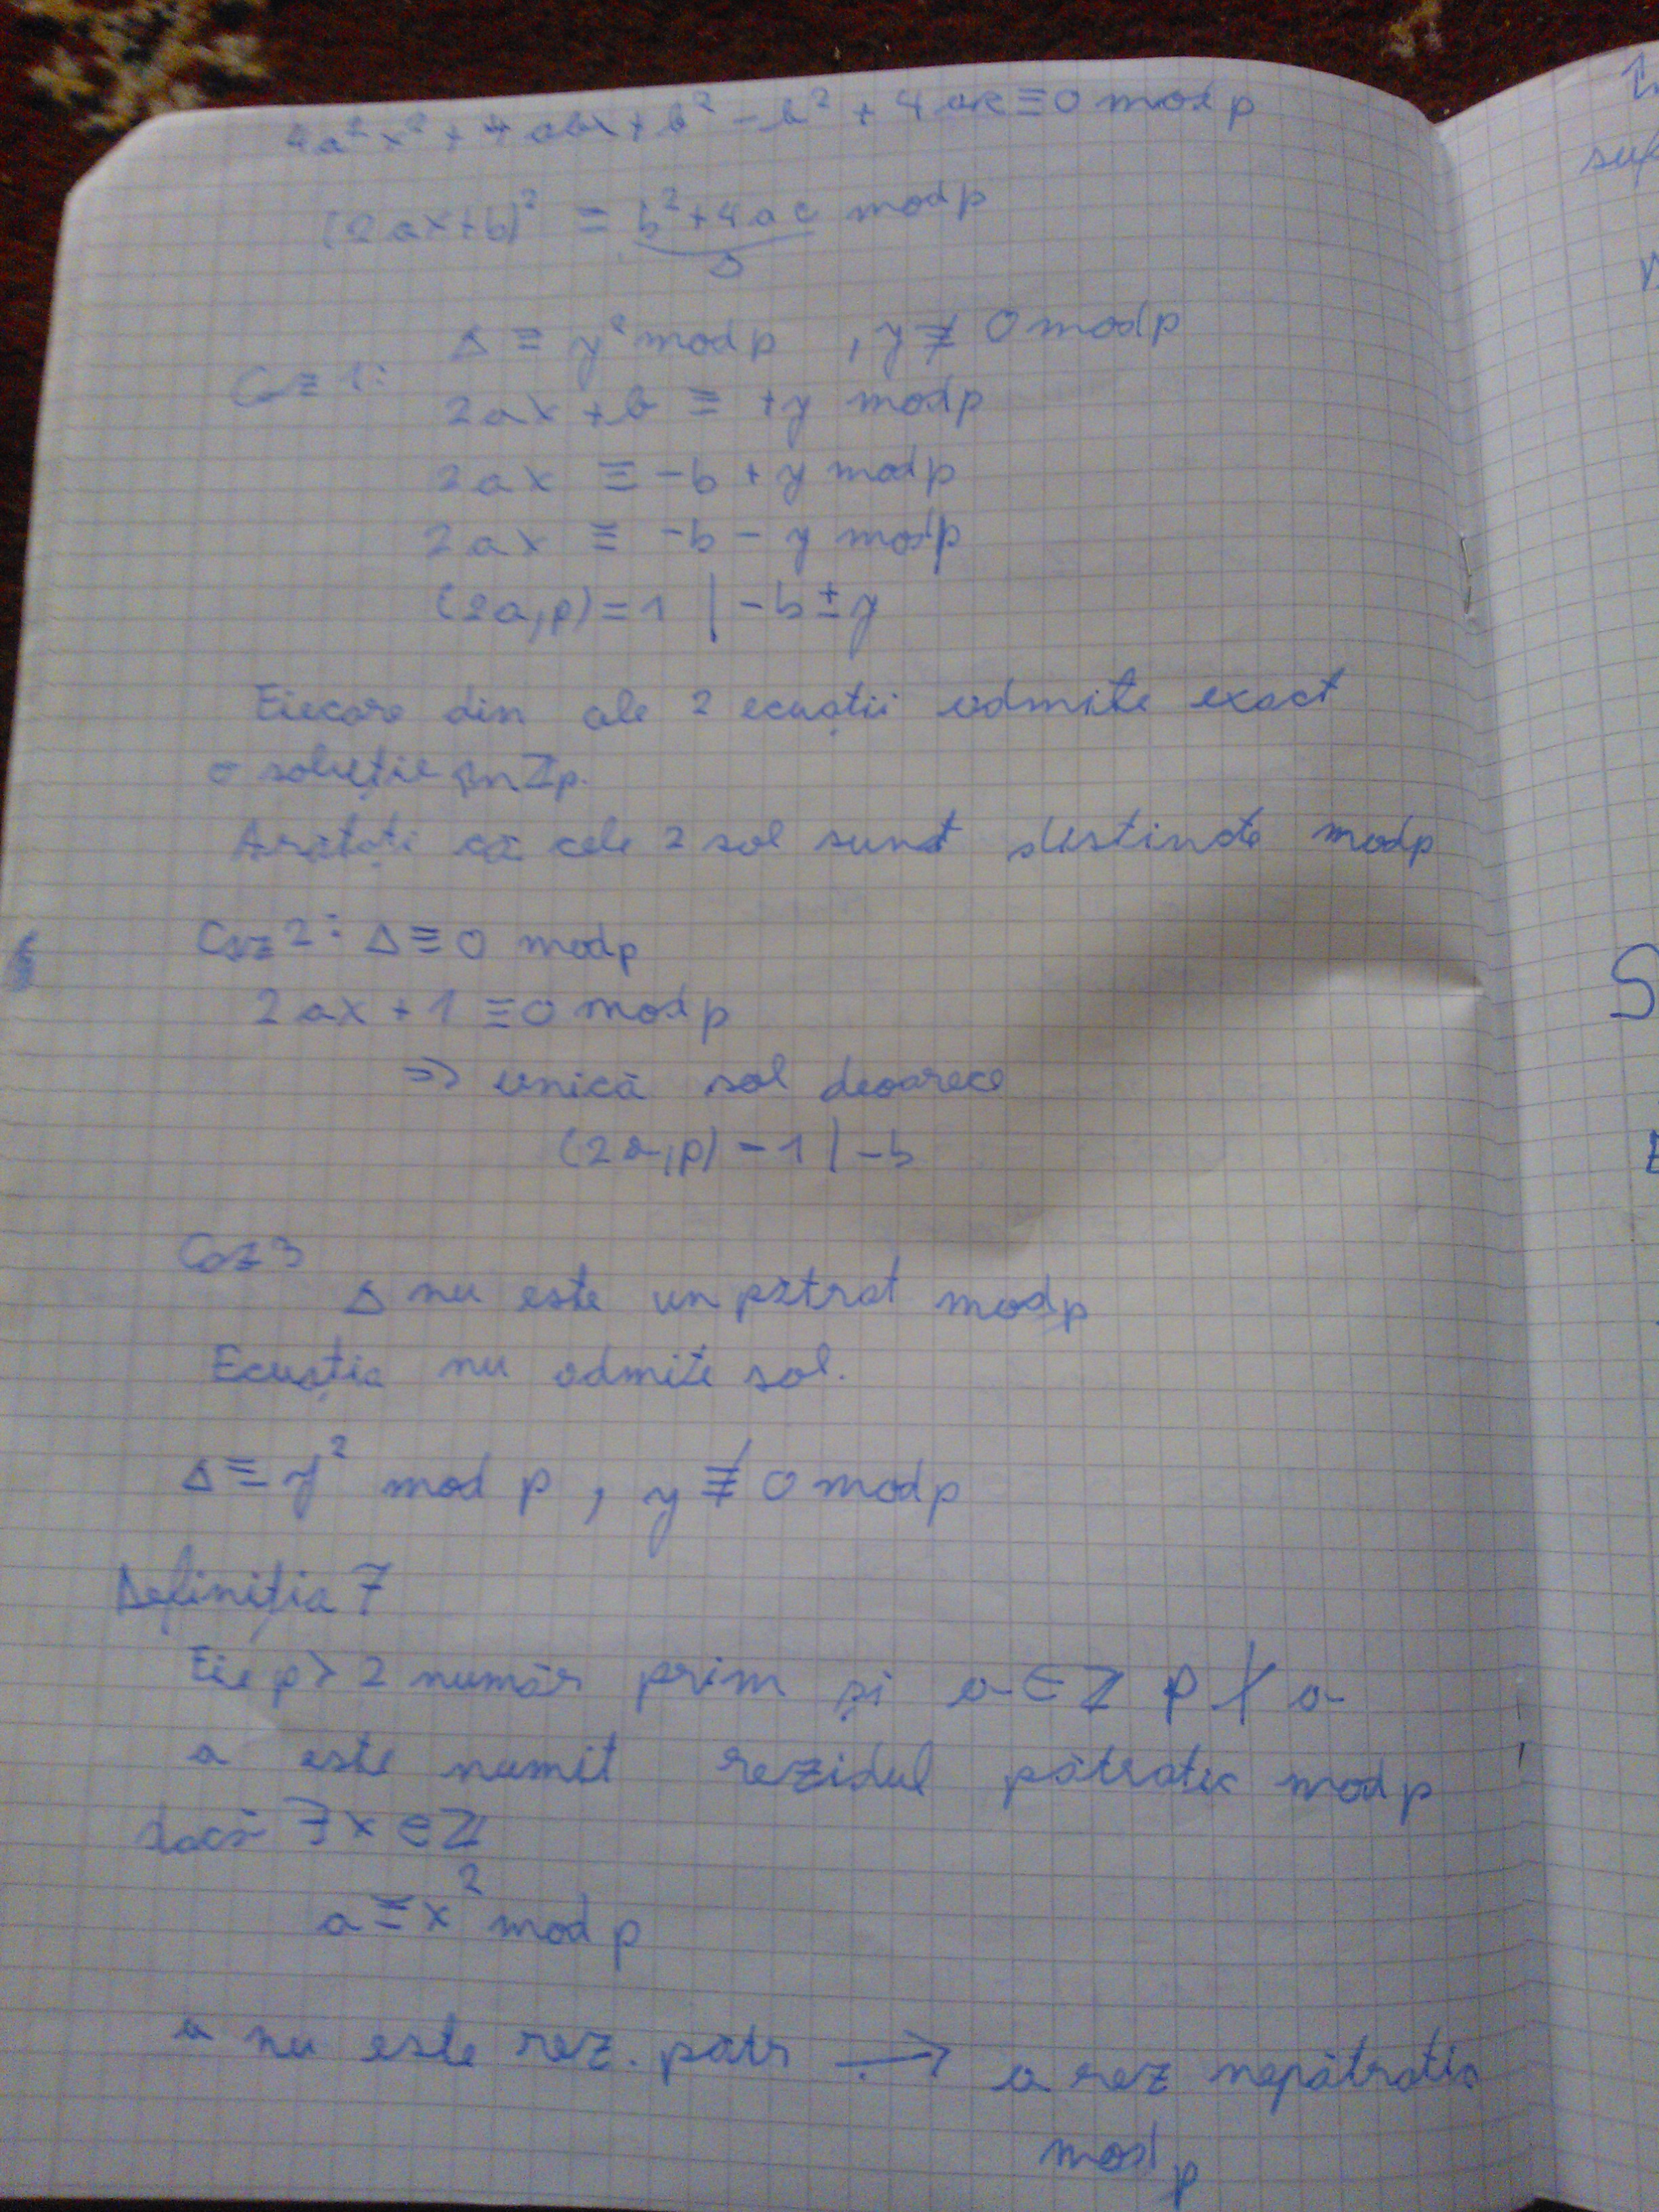 4a²x² + 4abx + b² - b² + 4ac ≡ 0 mod p
(2ax+b)² ≡ b² + 4ac mod p
Δ
Δ ≡ y² mod p , y ≢ 0 mod p
Caz 1:
2ax + b ≡ +y mod p
2ax ≡ -b + y mod p
2ax ≡ -b - y mod p
(2a,p) = 1 | -b ± y
Fiecare din cele 2 ecuații admite exact
o soluție în Zp.
Arătați că cele 2 sol sunt distincte mod p
Caz 2: Δ ≡ 0 mod p
2ax + 1 ≡ 0 mod p
=> unică sol deoarece
(2a,p) = 1 | -b
Caz 3
Δ nu este un pătrat mod p
Ecuația nu admite sol.
Δ ≡ y² mod p , y ≢ 0 mod p
Definiția 7
Fie p > 2 număr prim și a ∈ Z p ∤ a
a este numit rezidul pătratic mod p
dacă ∃ x ∈ Z
a ≡ x² mod p
a nu este rez. pătr → a rez nepătratic
mod p